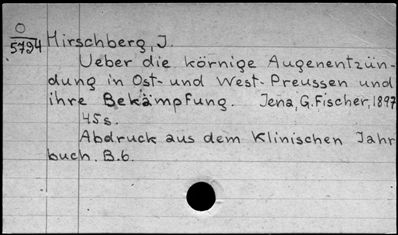 O
5794 Hirschberg, J.
Ueber die körnige Augenentzün-
dung in Ost- und West-Preussen und
ihre Bekämpfung. Jena, G. Fischer, 1897
45s.
Abdruck aus dem Klinischen Jahr
buch. B.6.